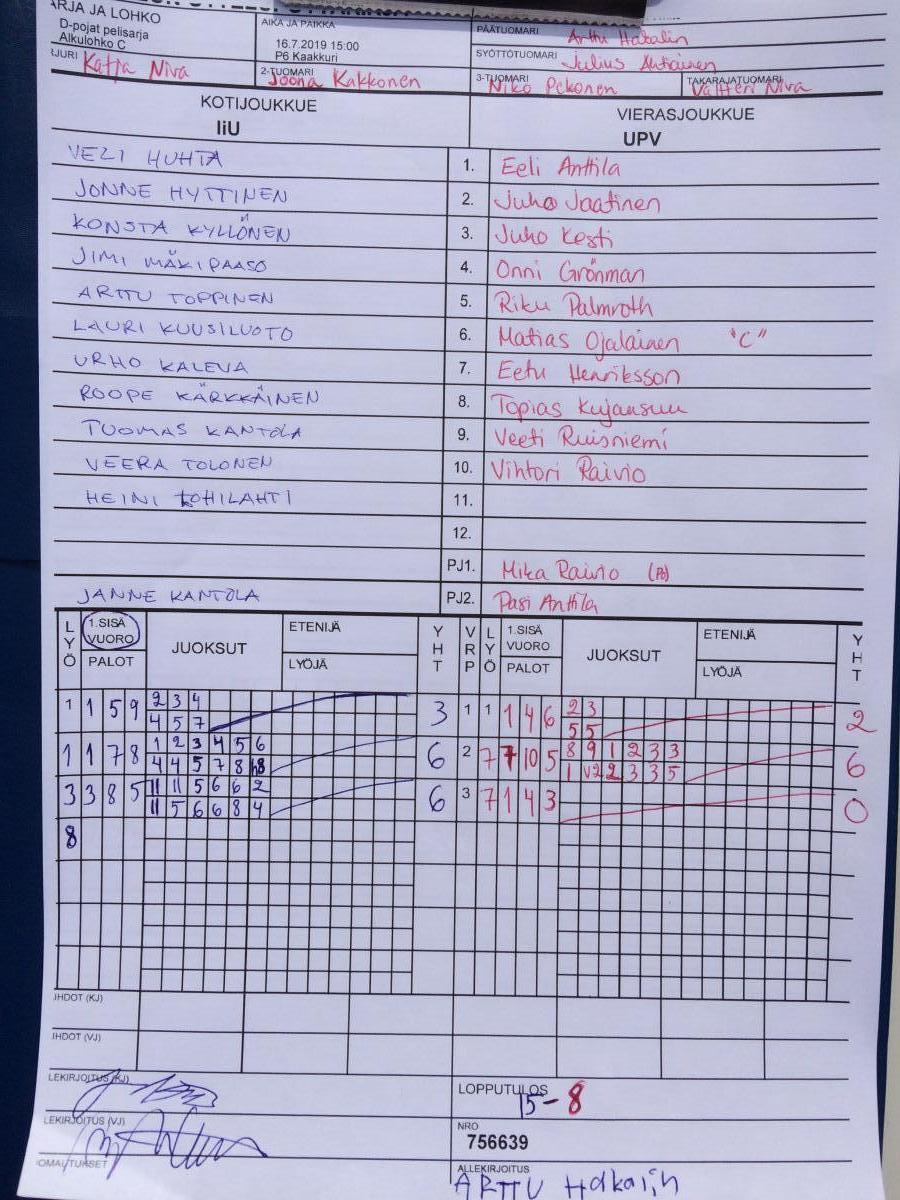 ARJA JA LOHKO
D-pojat pelisarja
Alkulohko C
AIKA JA PAIKKA
16.7.2019 15:00
P6 Kaakkuri
PÄÄTUOMARI Arttu Hakalin
SYÖTTÖTUOMARI Julius
JURI Katja Niva
2-TUOMARI Joona Kakkonen
3-TUOMARI Niko Pekonen
TAKARAJATUOMARI Valtteri Niva
KOTIJOUKKUE
IiU
VIERASJOUKKUE
UPV
VELI HUHTA 1. Eeli Anttila
JONNE HYTTINEN 2. Juho Jaatinen
KONSTA KYLLÖNEN 3. Juho Kesti
JIMI MÄKIPAASO 4. Onni Grönman
ARTTU TOPPINEN 5. Riku Palmroth
LAURI KUUSILUOTO 6. Matias Ojalainen "C"
URHO KALEVA 7. Eetu Henriksson
ROOPE KÄRKKÄINEN 8. Topias Kujansuu
TUOMAS KANTOLA 9. Veeti Ruisniemi
VEERA TOLONEN 10. Vihtori Raivio
HEINI LOHILAHTI 11.
12.
PJ1. Mika Raivio
JANNE KANTOLA PJ2. Pasi Anttila
LYÖ 1.SISÄ VUORO PALOT JUOKSUT ETENIJÄ LYÖJÄ YHT VRP LYÖ 1.SISÄ VUORO PALOT JUOKSUT ETENIJÄ LYÖJÄ YHT
1 1 5 9 2 3 4 3 1 1 1 4 6 2 3 2
4 5 7 5 5
1 1 7 8 1 2 3 4 5 6 6 2 7 7 10 5 8 9 1 2 3 3 6
4 4 5 7 8 1 V2 2 3 3 5
3 3 8 5 11 11 5 6 6 2 6 3 7 1 4 3 0
11 5 6 6 8 4
8
JHDOT (KJ)
JHDOT (VJ)
LEKIRJOITUS (KJ)
LOPPUTULOS
15-8
LEKIRJOITUS (VJ)
NRO
756639
OMAUTUKSET
ALLEKIRJOITUS
ARTTU Hakalin